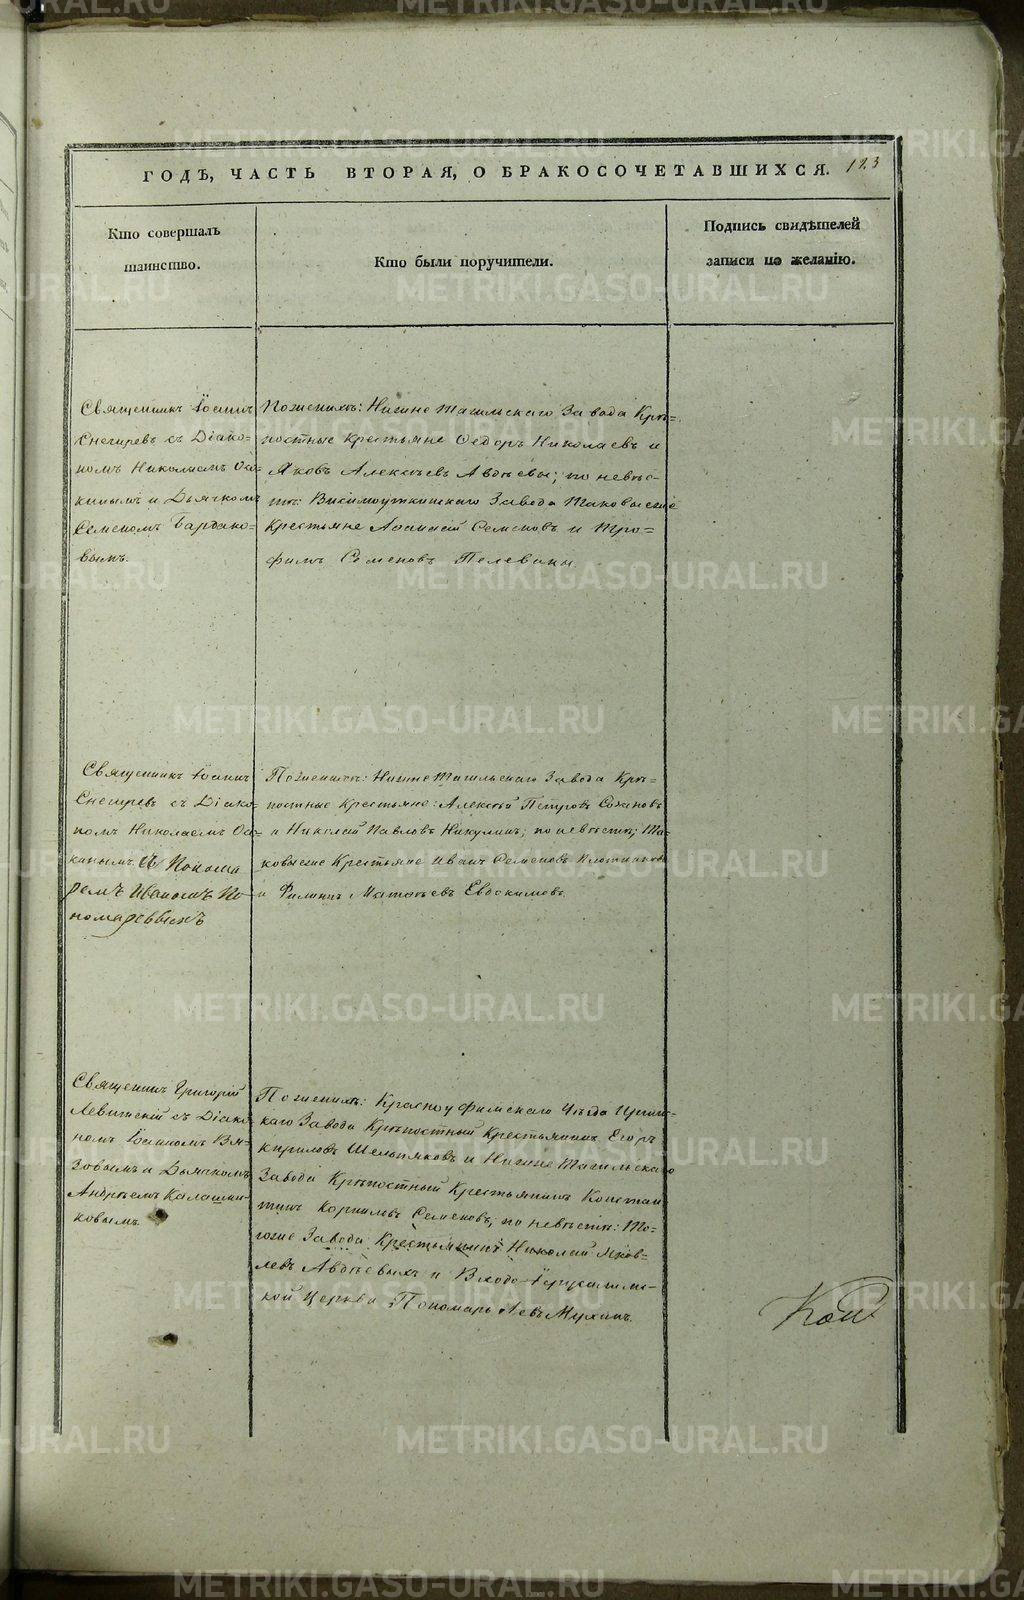 ГОДЪ, ЧАСТЬ ВТОРАЯ, О БРАКОСОЧЕТАВШИХСЯ.
123
Кто совершалъ
таинство.
Кто были поручители.
Подпись свидѣтелей
записи по желанію.
Священникъ Іоаннъ
Снегиревъ съ Діако-
номъ Николаемъ Ос-
кинымъ и Дьячкомъ
Семеномъ Бардако-
вымъ.
По женихѣ: Нижне Тагильскаго Завода Крѣ-
постные крестьяне Ѳедоръ Николаевъ и
Яковъ Алексѣевъ Авдѣевы; по невѣс-
тѣ: Висимоуткинскаго Завода таковыеже
Крестьяне Семеновъ и Тро-
фимъ Семеновъ Пелевины.
Священникъ Іоаннъ
Снегиревъ съ Діако-
номъ Николаемъ Ос-
кинымъ и Понома
ремъ Иваномъ По
номаревымъ
По женихѣ: Нижне Тагильскаго Завода Крѣ-
постные Крестьяне: Алексѣй Петровъ
и Николай Павловъ Никулинъ; по невѣстѣ; Та-
ковыеже Крестьяне Иванъ Семеновъ Плотниковъ
и Филипъ Матвѣевъ Евдокимовъ.
Священникъ Григорій
Левитскій съ Діако-
номъ Іоанномъ Вя-
зовымъ и Дьячкомъ
Андрѣемъ Калашни-
ковымъ.
По женихѣ: Красноуфимскаго Уѣзда
каго Завода Крѣпостный Крестьянинъ Егоръ
Кириловъ Шельпяковъ и Нижне Тагильскаго
Завода Крѣпостный Крестьянинъ Констан
тинъ Корниловъ Семеновъ; по невѣстѣ: То-
гоже Завода Крестьянинъ Николай Яков-
левъ Авдѣевыхъ и Входо-Іерусалимс-
кой Церкви Пономарь Левъ Мухинъ.